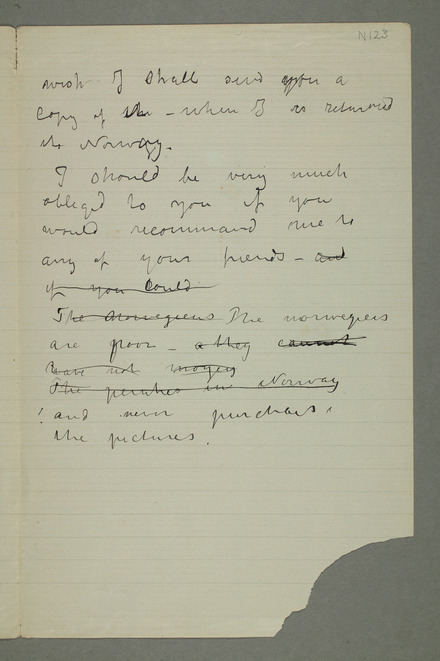 N 123
wish I shall send you a
copy of – when I is returned
to Norway.
I should be very much
obliged to you if you
would recommand me to
any of your friends – and
if you could
The Norwegiens The norwegiens
are poor – they cannot
have not
The in Norway
and never purchais
the pictures.